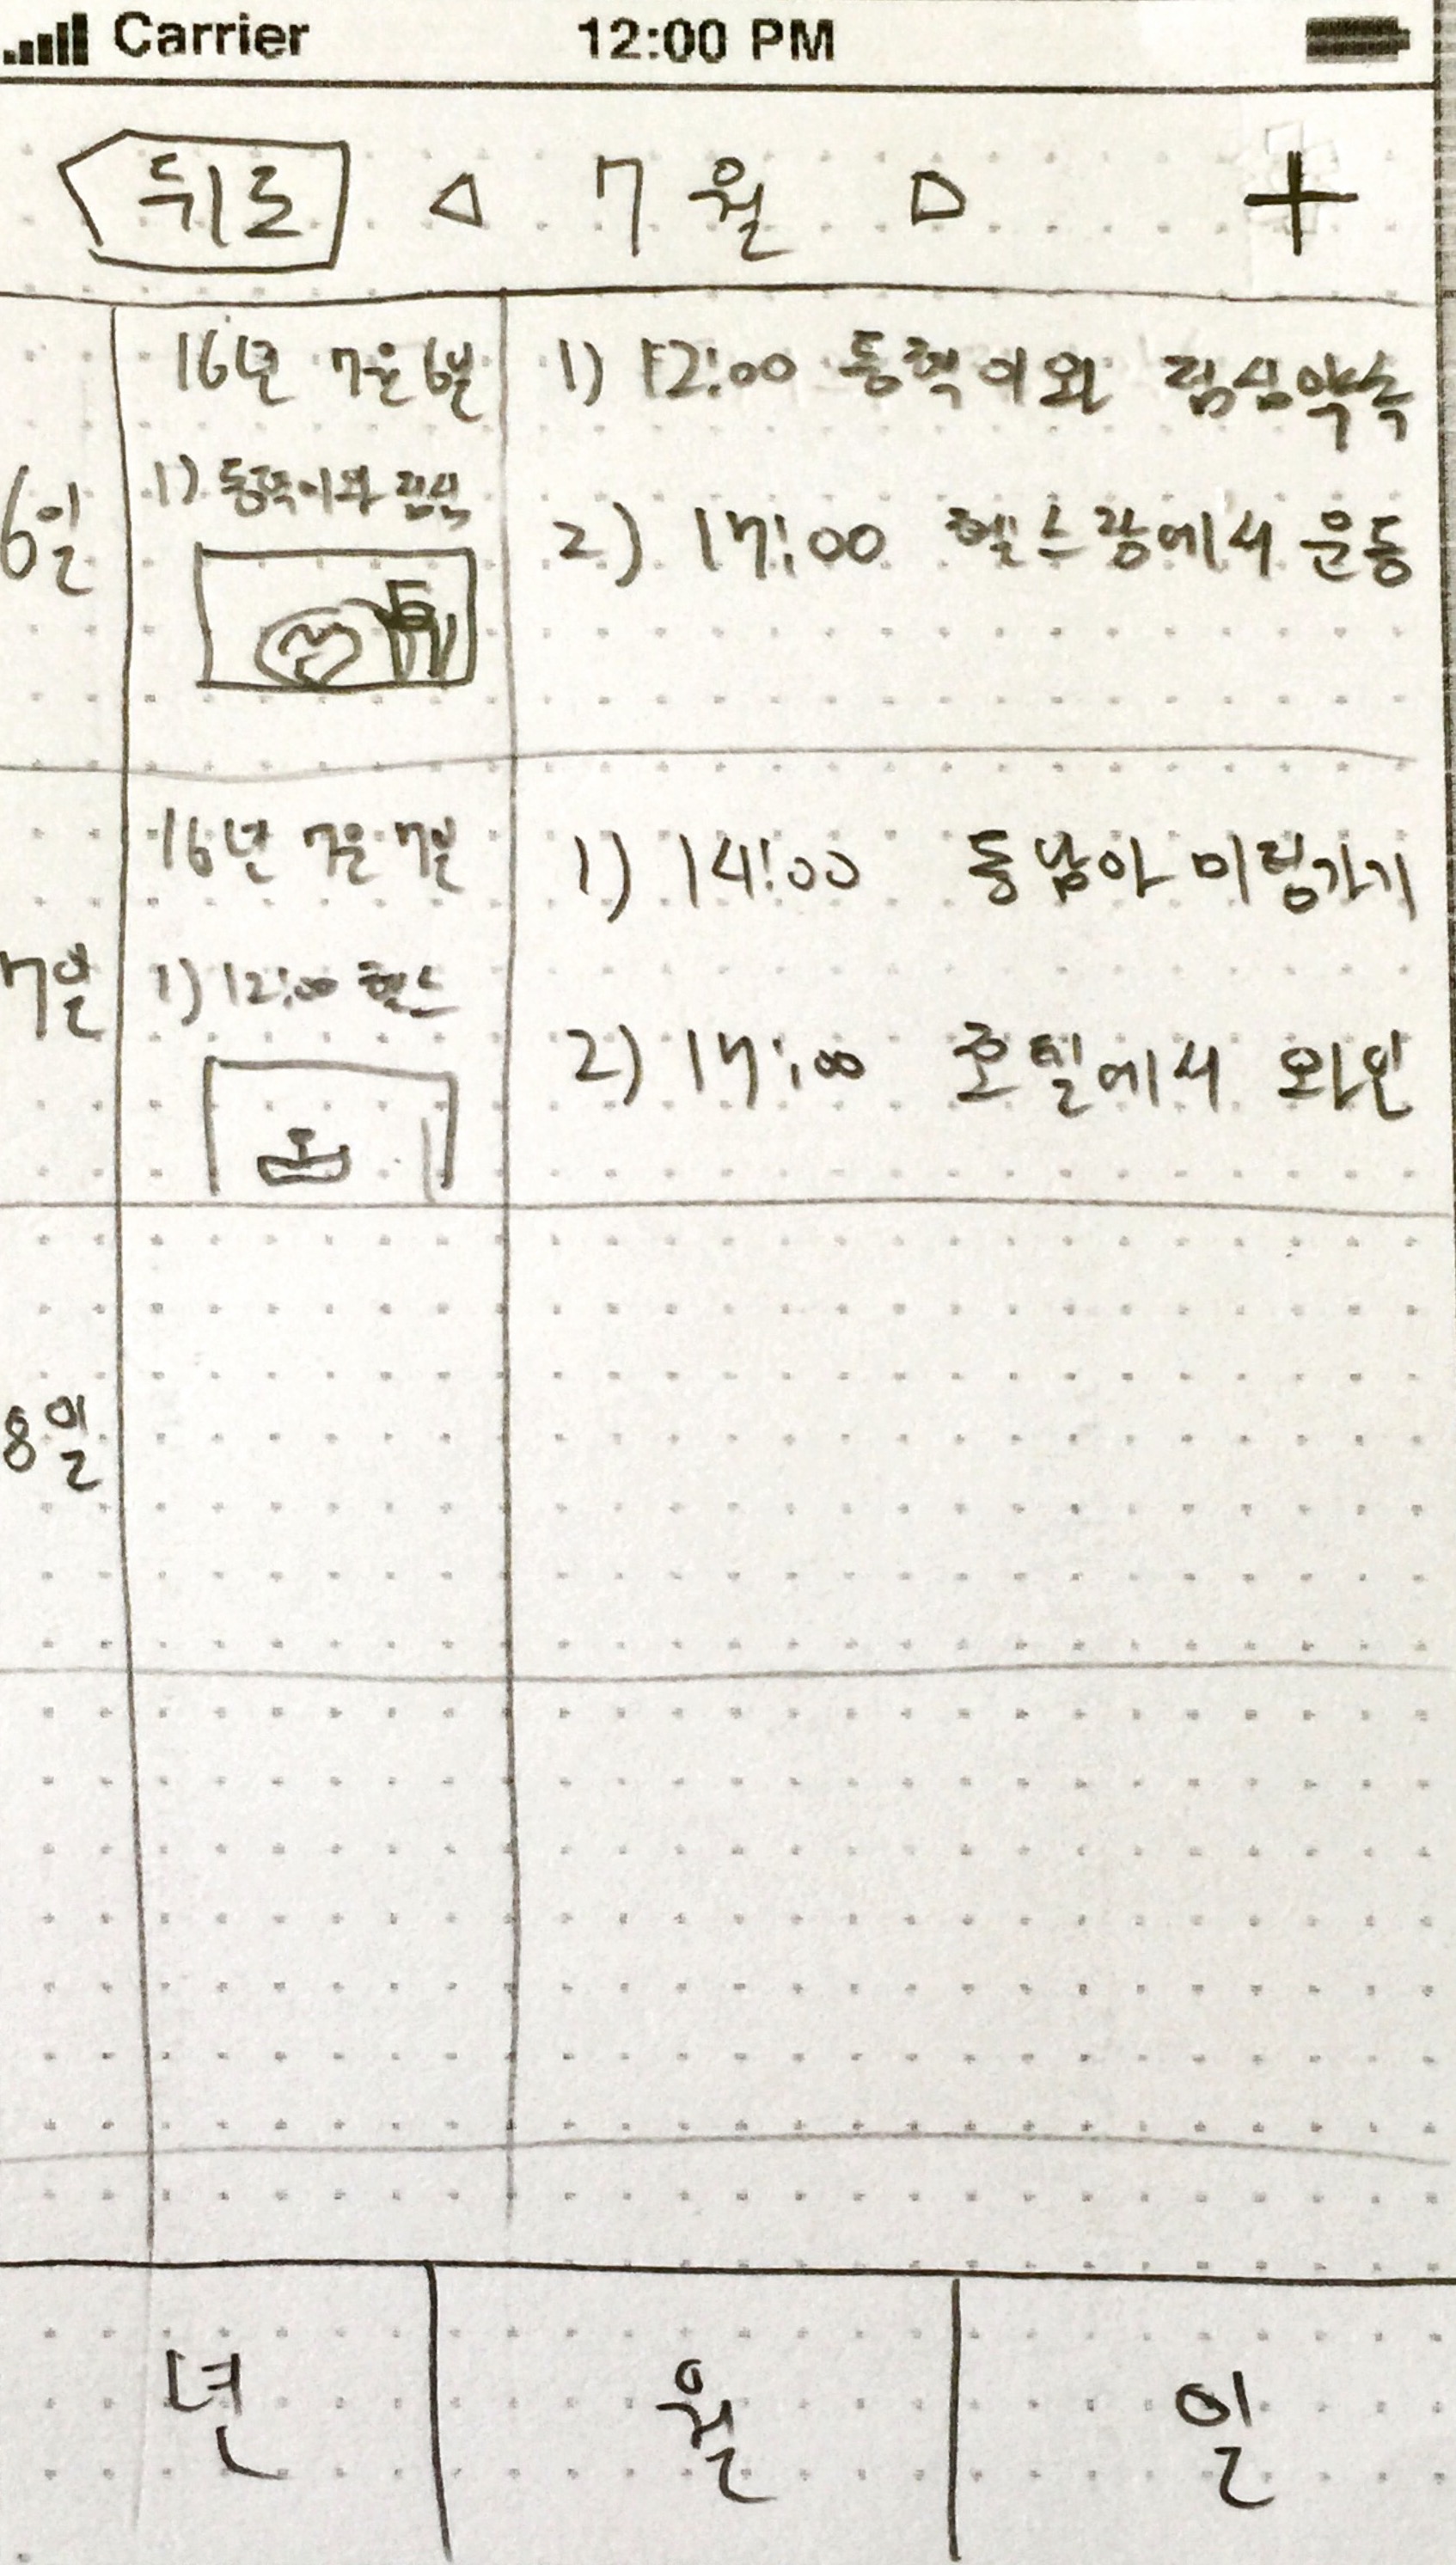 Carrier 12:00 PM
뒤로 ◁ 7월 ▷ +
6일
16년 7월 6일
1) 동혁이와 점심
1) 12:00 동혁이와 점심약속
2) 17:00 헬스장에서 운동
7일
16년 7월 7일
1) 12:00 헬스
1) 14:00 동남아 미팅가기
2) 17:00 호텔에서 와인
8일
년 월 일